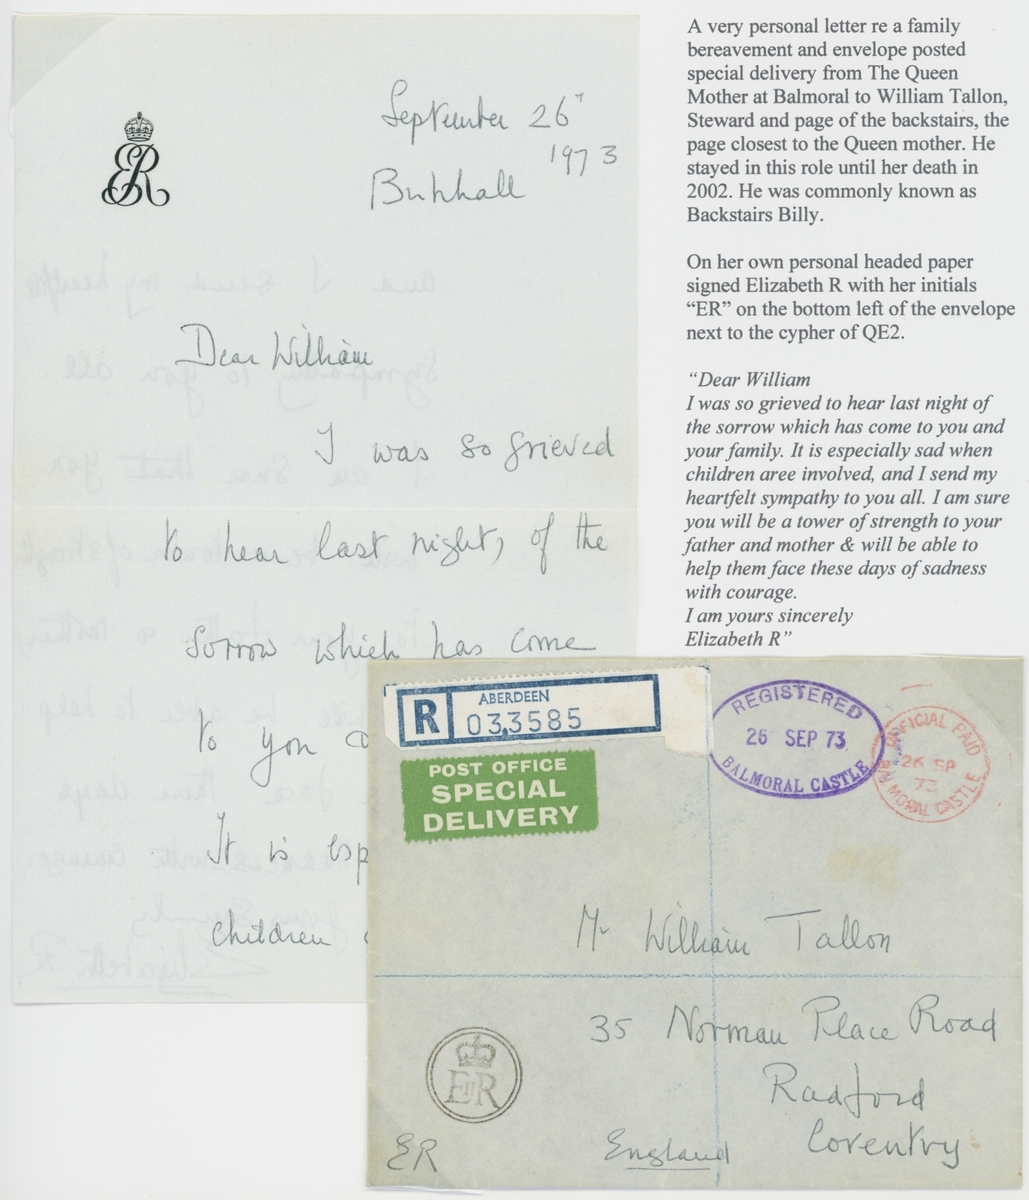 September 26"
1973
Birkhall
Dear William
I was so grieved
to hear last night, of the
sorrow which has come
to you
It is esp
children
A very personal letter re a family
bereavement and envelope posted
special delivery from The Queen
Mother at Balmoral to William Tallon,
Steward and page of the backstairs, the
page closest to the Queen mother. He
stayed in this role until her death in
2002. He was commonly known as
Backstairs Billy.
On her own personal headed paper
signed Elizabeth R with her initials
“ER” on the bottom left of the envelope
next to the cypher of QE2.
“Dear William
I was so grieved to hear last night of
the sorrow which has come to you and
your family. It is especially sad when
children aree involved, and I send my
heartfelt sympathy to you all. I am sure
you will be a tower of strength to your
father and mother & will be able to
help them face these days of sadness
with courage.
I am yours sincerely
Elizabeth R”
R
ABERDEEN
033585
POST OFFICE
SPECIAL
DELIVERY
REGISTERED
26 SEP 73
BALMORAL CASTLE
OFFICIAL PAID
26 SP
73
BALMORAL CASTLE
Mr William Tallon
35 Norman Place Road
Radford
Coventry
England
EIIR
ER